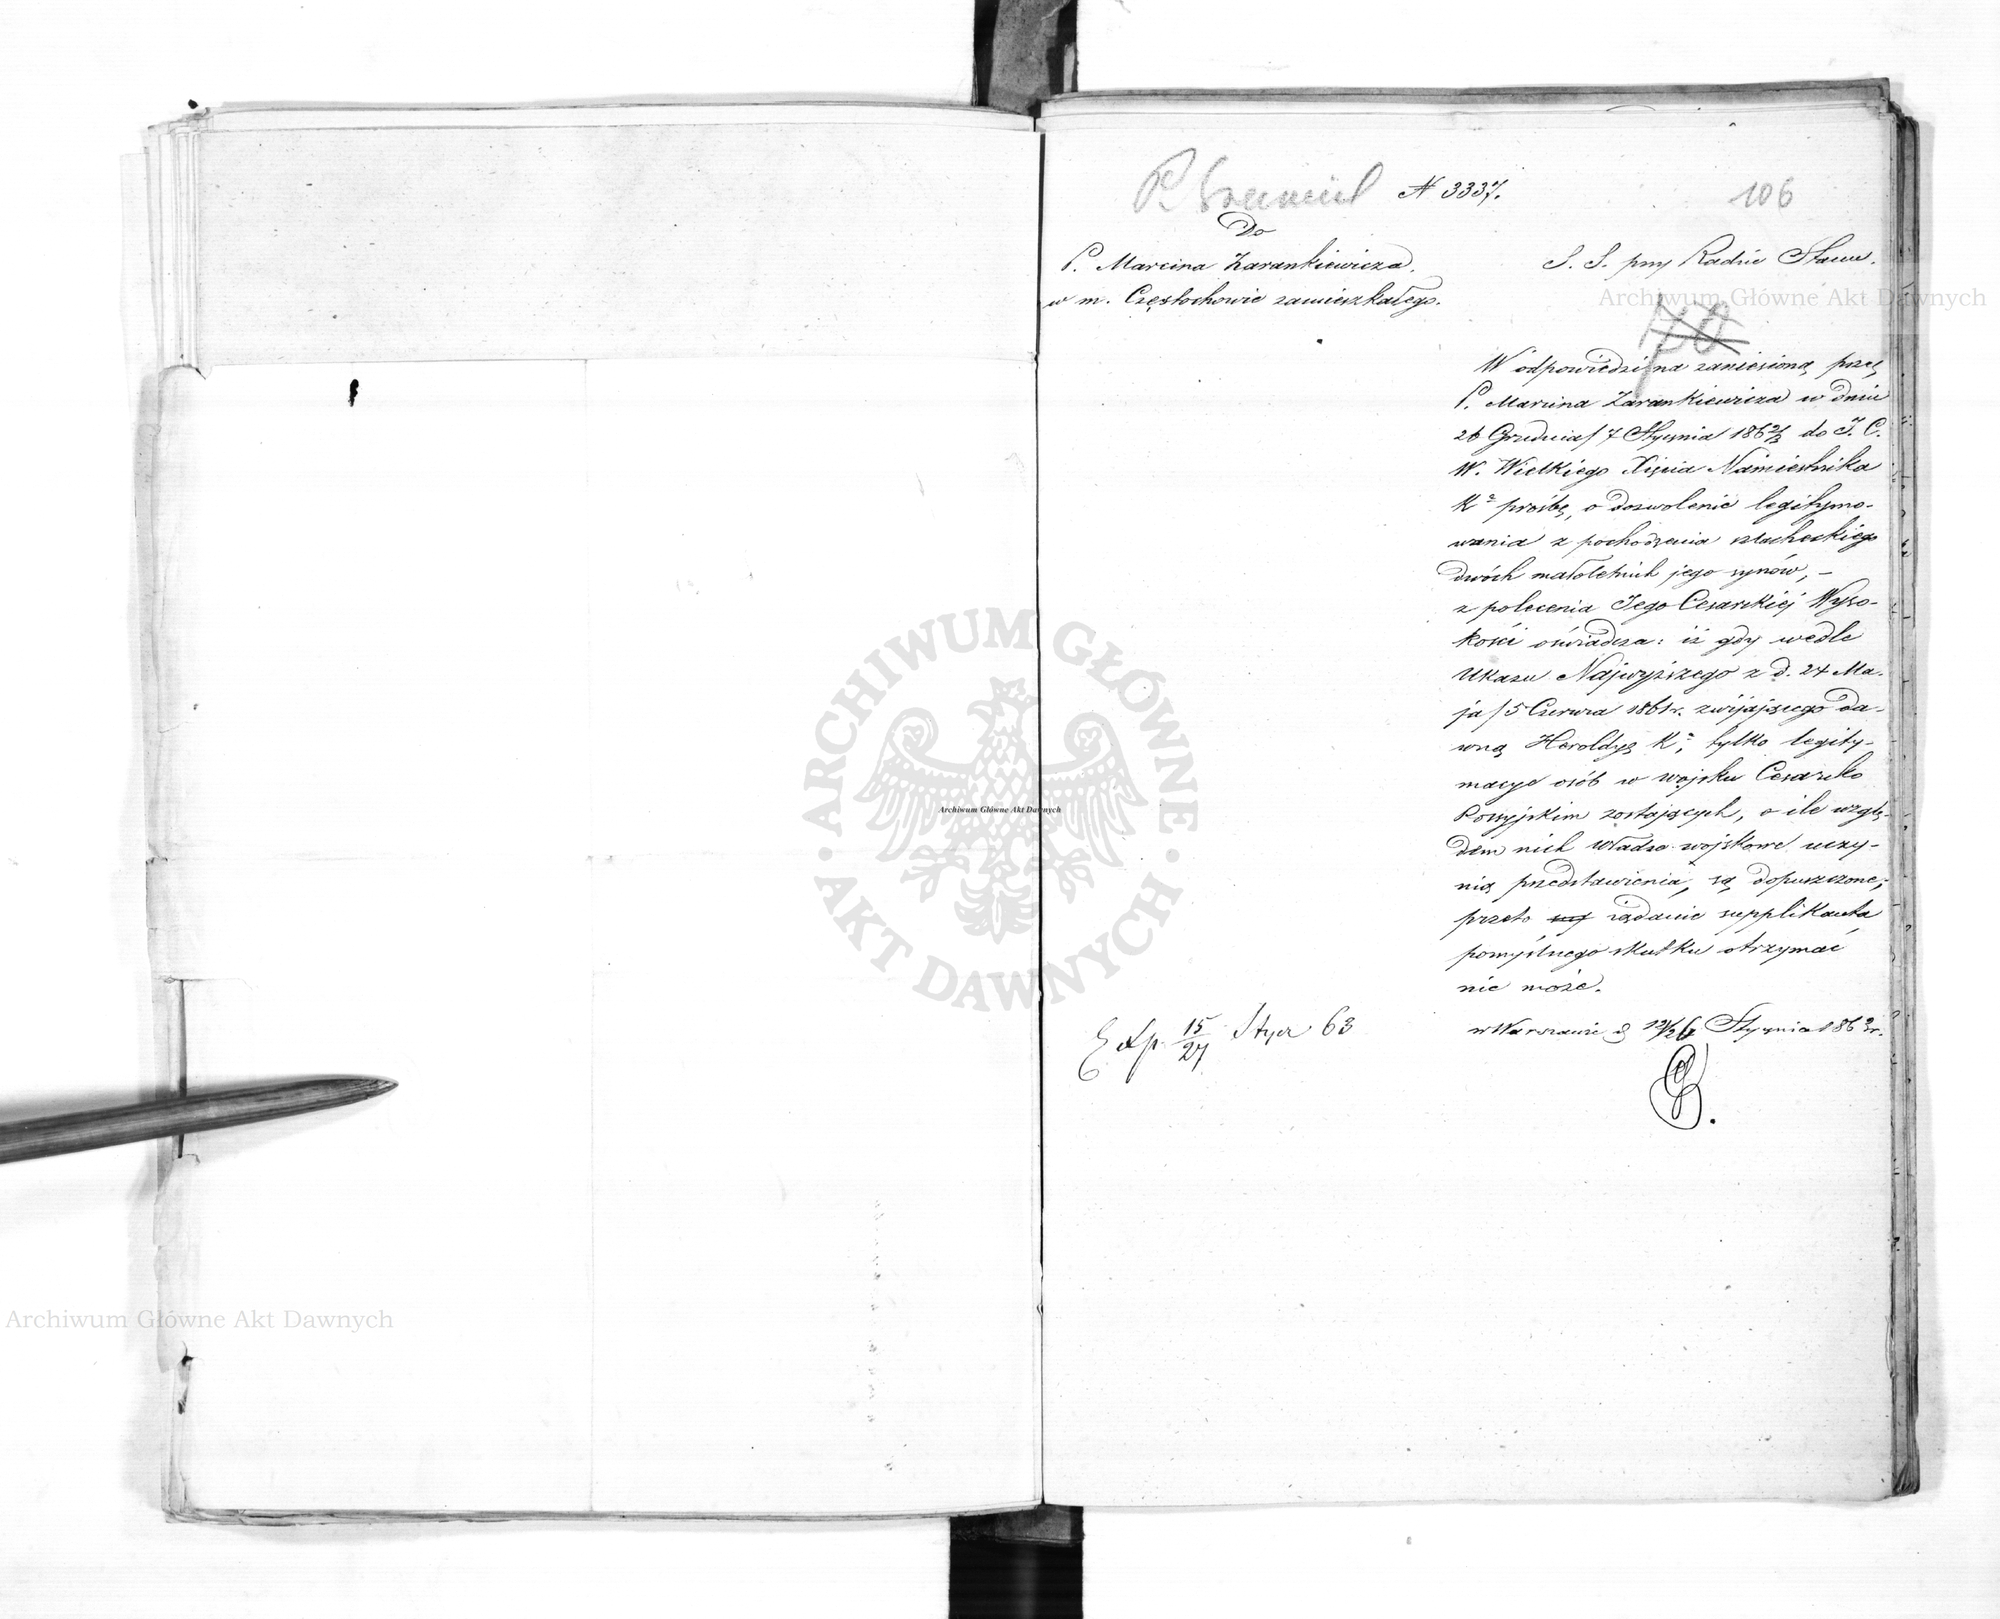 N 3337.
106
Do
P. Marcina Zarankiewicza.
w m. Częstochowie zamieszkałego.
S. S. przy Radzie Stanu.
Archiwum Główne Akt Dawnych
70
W odpowiedzi na zaniesioną przez
P. Marcina Zarankiewicza w dniu
26 Grudnia/7 Stycznia 1862/3 do J. C.
W. Wielkiego Xięcia Namiestnika
Kª prośbę, o dozwolenie legitymo-
wania z pochodzenia szlacheckiego
dwóch małoletnich jego synów, –
z polecenia Jego Cesarskiej Wyso-
kości oświadcza: iż gdy wedle
Ukazu Najwyższego z d. 24 Ma-
ja/5 Czerwca 1861 r. zwijającego da-
wną Heroldyą Kª, tylko legity-
macye osób w wojsku Cesarsko
Rossyjskim zostających, o ile wzglę-
dem nich władze wojskowe uczy-
nią przedstawienia, są dopuszczone;
przeto żądanie supplikanta
pomyślnego skutku otrzymać
nie może.
w Warszawie d. 12/24 Stycznia 1863 r.
Exp. 15/27 Stycz 63
ARCHIWUM GŁÓWNE
AKT DAWNYCH
Archiwum Główne Akt Dawnych
Archiwum Główne Akt Dawnych